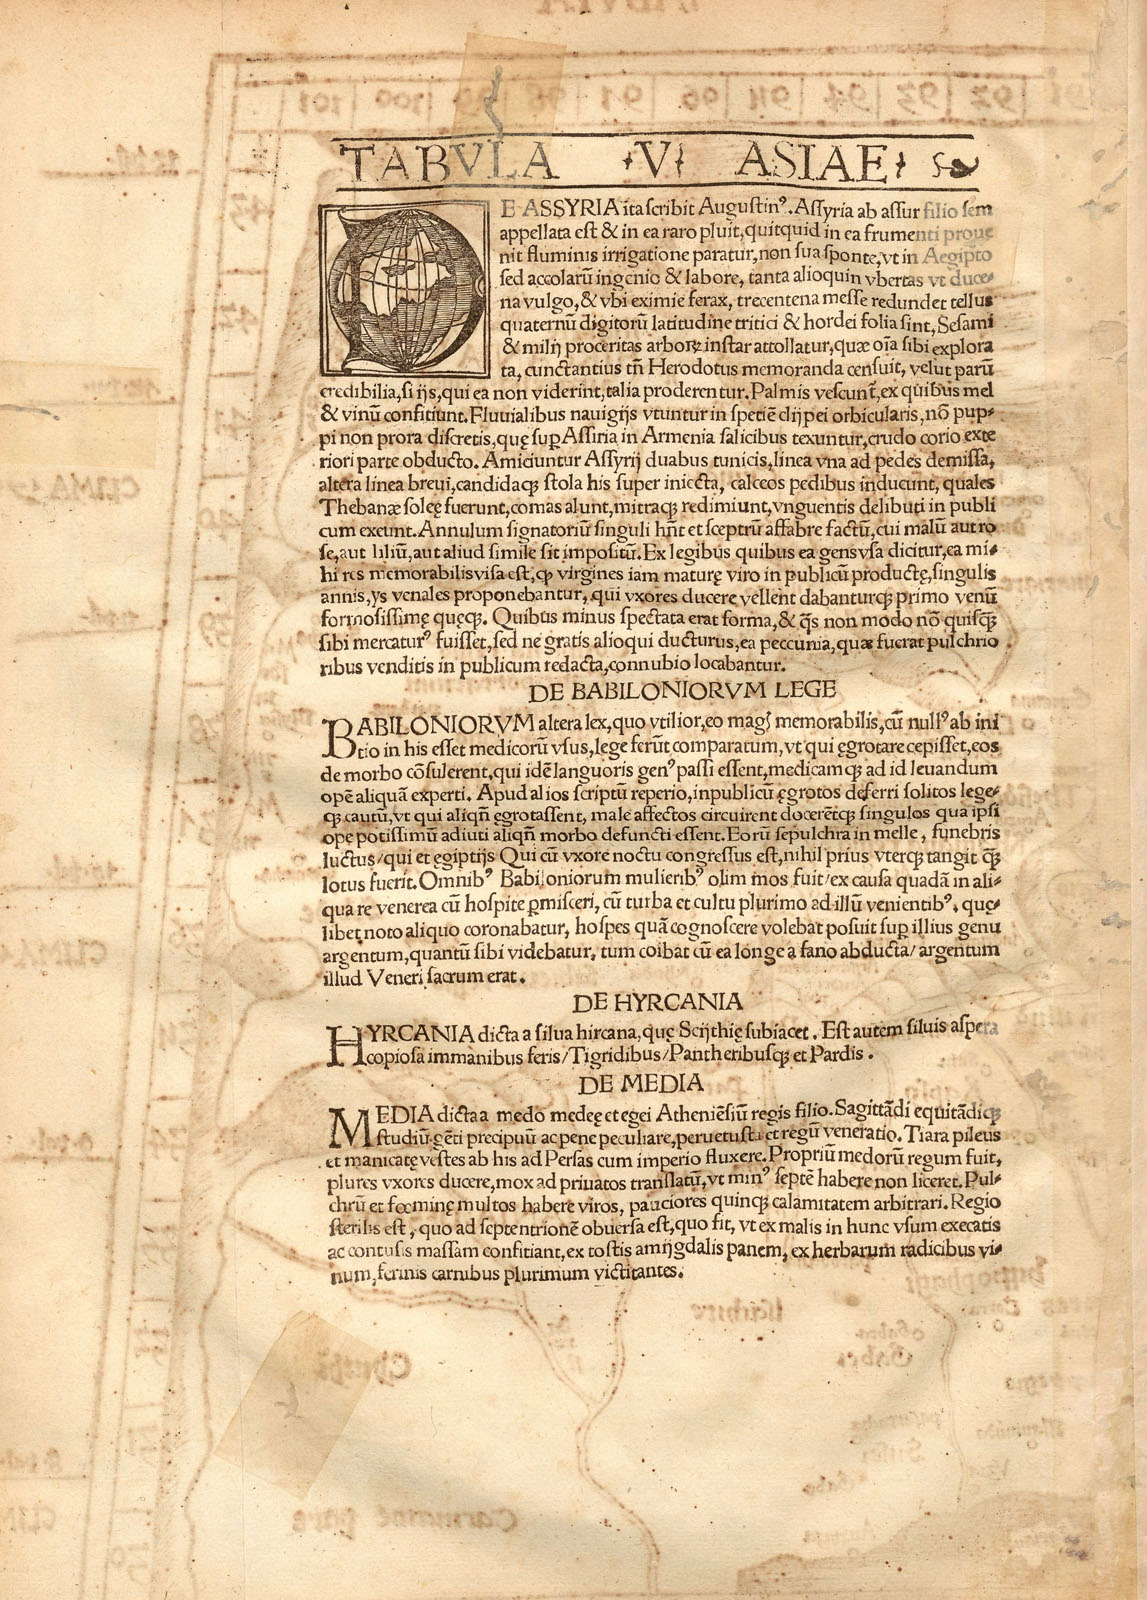 TABVLA V ASIAE
DE ASSYRIA ita scribit Augustinꝰ. Assyria ab assur filio sem
appellata est & in ea raro pluit, quitquid in ea frumenti proue
nit fluminis irrigatione paratur, non sua sponte, vt in Aegipto
sed accolarū ingenio & labore, tanta alioquin vbertas vt duce⸗
na vulgo, & vbi eximie ferax, trecentena messe redundet tellus
quaternū digitorū latitudine tritici & hordei folia sint, Sesami
& milij proceritas arborꝝ instar attollatur, quæ oīa sibi explora
ta, cunctantius tn̄ Herodotus memoranda censuit, velut parū
credibilia, si ijs, qui ea non viderint, talia proderentur. Palmis vescunt̄, ex quibus mel
& vinū confitiunt. Fluuialibus nauigijs vtuntur in spetiē clijpei orbicularis, nō pup⸗
pi non prora discretis, quę suꝑ Assiria in Armenia salicibus texuntur, crudo corio exte
riori parte obducto. Amiciuntur Assyrij duabus tunicis, linea vna ad pedes demissa,
altera linea breui, candidaqꝫ stola his super iniecta, calceos pedibus inducunt, quales
Thebanæ soleę fuerunt, comas alunt, mitraqꝫ redimiunt, vnguentis delibuti in publi
cum exeunt. Annulum signatoriū singuli hn̄t et sceptrū affabre factū, cui malū aut ro
se, aut liliū, aut aliud simile sit impositū. Ex legibus quibus ea gens vsa dicitur, ea mi⸗
hi res memorabilis visa est, qꝫ virgines iam maturę viro in publicū productę, singulis
annis, ys venales proponebantur, qui vxores ducere vellent dabanturqꝫ primo venū
formosissimę quęqꝫ. Quibus minus spectata erat forma, & q̄s non modo nō quisq̄ꝫ
sibi mercaturꝰ fuisset, sed ne gratis alioqui ducturus, ea peccunia, quæ fuerat pulchrio
ribus venditis in publicum redacta, connubio locabantur.
DE BABILONIORVM LEGE
BABILONIORVM altera lex, quo vtilior, eo magꝭ memorabilis, cū nullꝰ ab ini
tio in his esset medicorū vsus, lege ferūt comparatum, vt qui ęgrotare cepisset, eos
de morbo cōsulerent, qui idē languoris genꝰ passi essent, medicamqꝫ ad id leuandum
opē aliquā experti. Apud alios scriptū reperio, in publicū ęgrotos deferri solitos lege⸗
qꝫ cautū, vt qui aliqn̄ ęgrotassent, male affectos circuirent docerētqꝫ singulos qua ipsi
ope potissimū adiuti aliqn̄ morbo defuncti essent. Eorū sepulchra in melle, funebris
luctus/qui et ęgiptijs Qui cū vxore noctu congressus est, nihil prius vterqꝫ tangit q̄ꝫ
lotus fuerit. Omnibꝰ Babiloniorum mulieribꝰ olim mos fuit/ex causa quadā in ali⸗
qua re venerea cū hospite ꝑmisceri, cū turba et cultu plurimo ad illū venientibꝰ, quę⸗
libet noto aliquo coronabatur, hospes quā cognoscere volebat posuit suꝑ illius genu
argentum, quantū sibi videbatur, tum coibat cū ea longe a fano abducta/ argentum
illud Veneri sacrum erat.
DE HYRCANIA
HYRCANIA dicta a silua hircana, quę Scijthię subiacet. Est autem siluis aspera
copiosa immanibus feris/Tigridibus/Pantheribusqꝫ et Pardis.
DE MEDIA
MEDIA dicta a medo medeę et egei Atheniēsiū regis filio. Sagittādi equitādiqꝫ
studiū gēti precipuū ac pene peculiare, peruetusta et regū veneratio. Tiara pileus
et manicatę vestes ab his ad Persas cum imperio fluxere. Propriū medorū regum fuit,
plures vxores ducere, mox ad priuatos translatū, vt minꝰ septē habere non liceret. Pul⸗
chrū et fœminę multos habere viros, pauciores quinqꝫ calamitatem arbitrari. Regio
sterilis est, quo ad septentrionē obuersa est, quo fit, vt ex malis in hunc vsum execatis
ac contusis massam confitiant, ex tostis amijgdalis panem, ex herbarum radicibus vi⸗
num, ferinis carnibus plurimum victitantes.